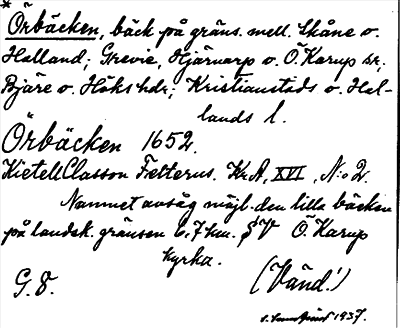 * Örbäcken, bäck på gräns. mell. Skåne o.
Halland; Grevie, Hjärnarp o. Ö. Karup sr;
Bjäre o. Höks hdr; Kristianstads o. Hal-
lands l.
Örbäcken 1652.
Kietell Classon Felterus. Kr.A, XVI, N:o 2.
Namnet avsåg möjl. den lilla bäcken
på landsk. gränsen 6,7 km. SV Ö. Karup
kyrka.
G. F. (Vänd!)
1937.